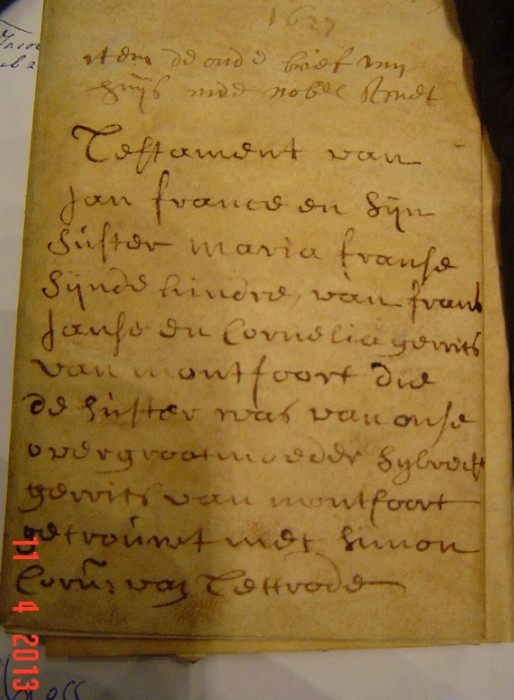 1627
item de oude brief van
huijs inde nobel straet
Testament van
Jan france en sijn
súster maria franse
sijnde kindre, van frans
Janse en Cornelia gerrits
van montfoort die
de súster was van onse
overgrootmoeder Sybrech
gerrits van montfoort
getrouwt met Simon
Corns van Tettrode
11 4 2013